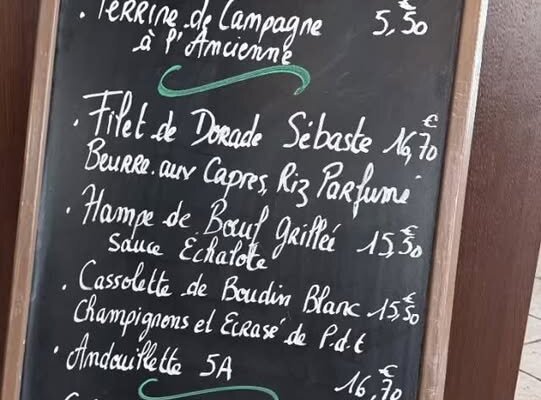 . Terrine de Campagne 5,50 €
à l'Ancienne
. Filet de Dorade Sébaste 16,70 €
Beurre aux Capres, Riz Parfumé
. Hampe de Bœuf grillée 15,50 €
Sauce Echalote
. Cassolette de Boudin Blanc 15,50 €
Champignons et Ecrasé de P.d.t
. Andouillette 5A 16,70 €